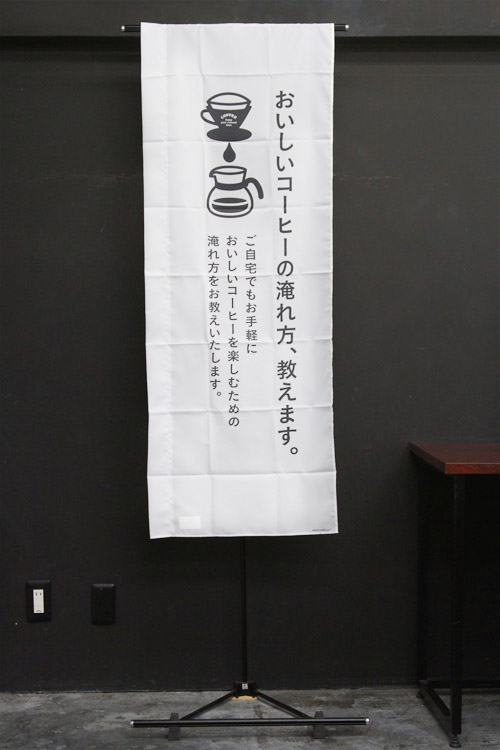 おいしいコーヒーの淹れ方、教えます。
ご自宅でもお手軽に
おいしいコーヒーを楽しむための
淹れ方をお教えいたします。
COFFEE